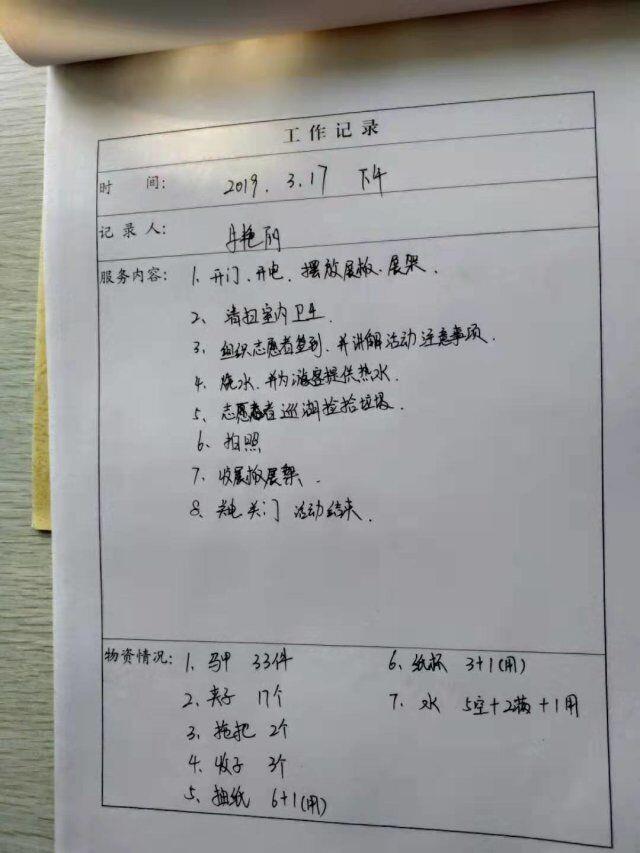 工作记录
时 间: 2019.3.17 下午
记录人: 艳丽
服务内容: 1、开门、开电、摆放展板、展架.
2、清扫室内卫生.
3、组织志愿者签到,并讲解活动注意事项.
4、烧水,并为游客提供热水.
5、志愿者巡湖捡拾垃圾.
6、拍照
7、收展板展架.
8、关电关门 活动结束.
物资情况: 1、马甲 33件 6、纸杯 3+1(用)
2、夹子 17个 7、水 5空+2满+1用
3、拖把 2个
4、子 3个
5、抽纸 6+1(用)